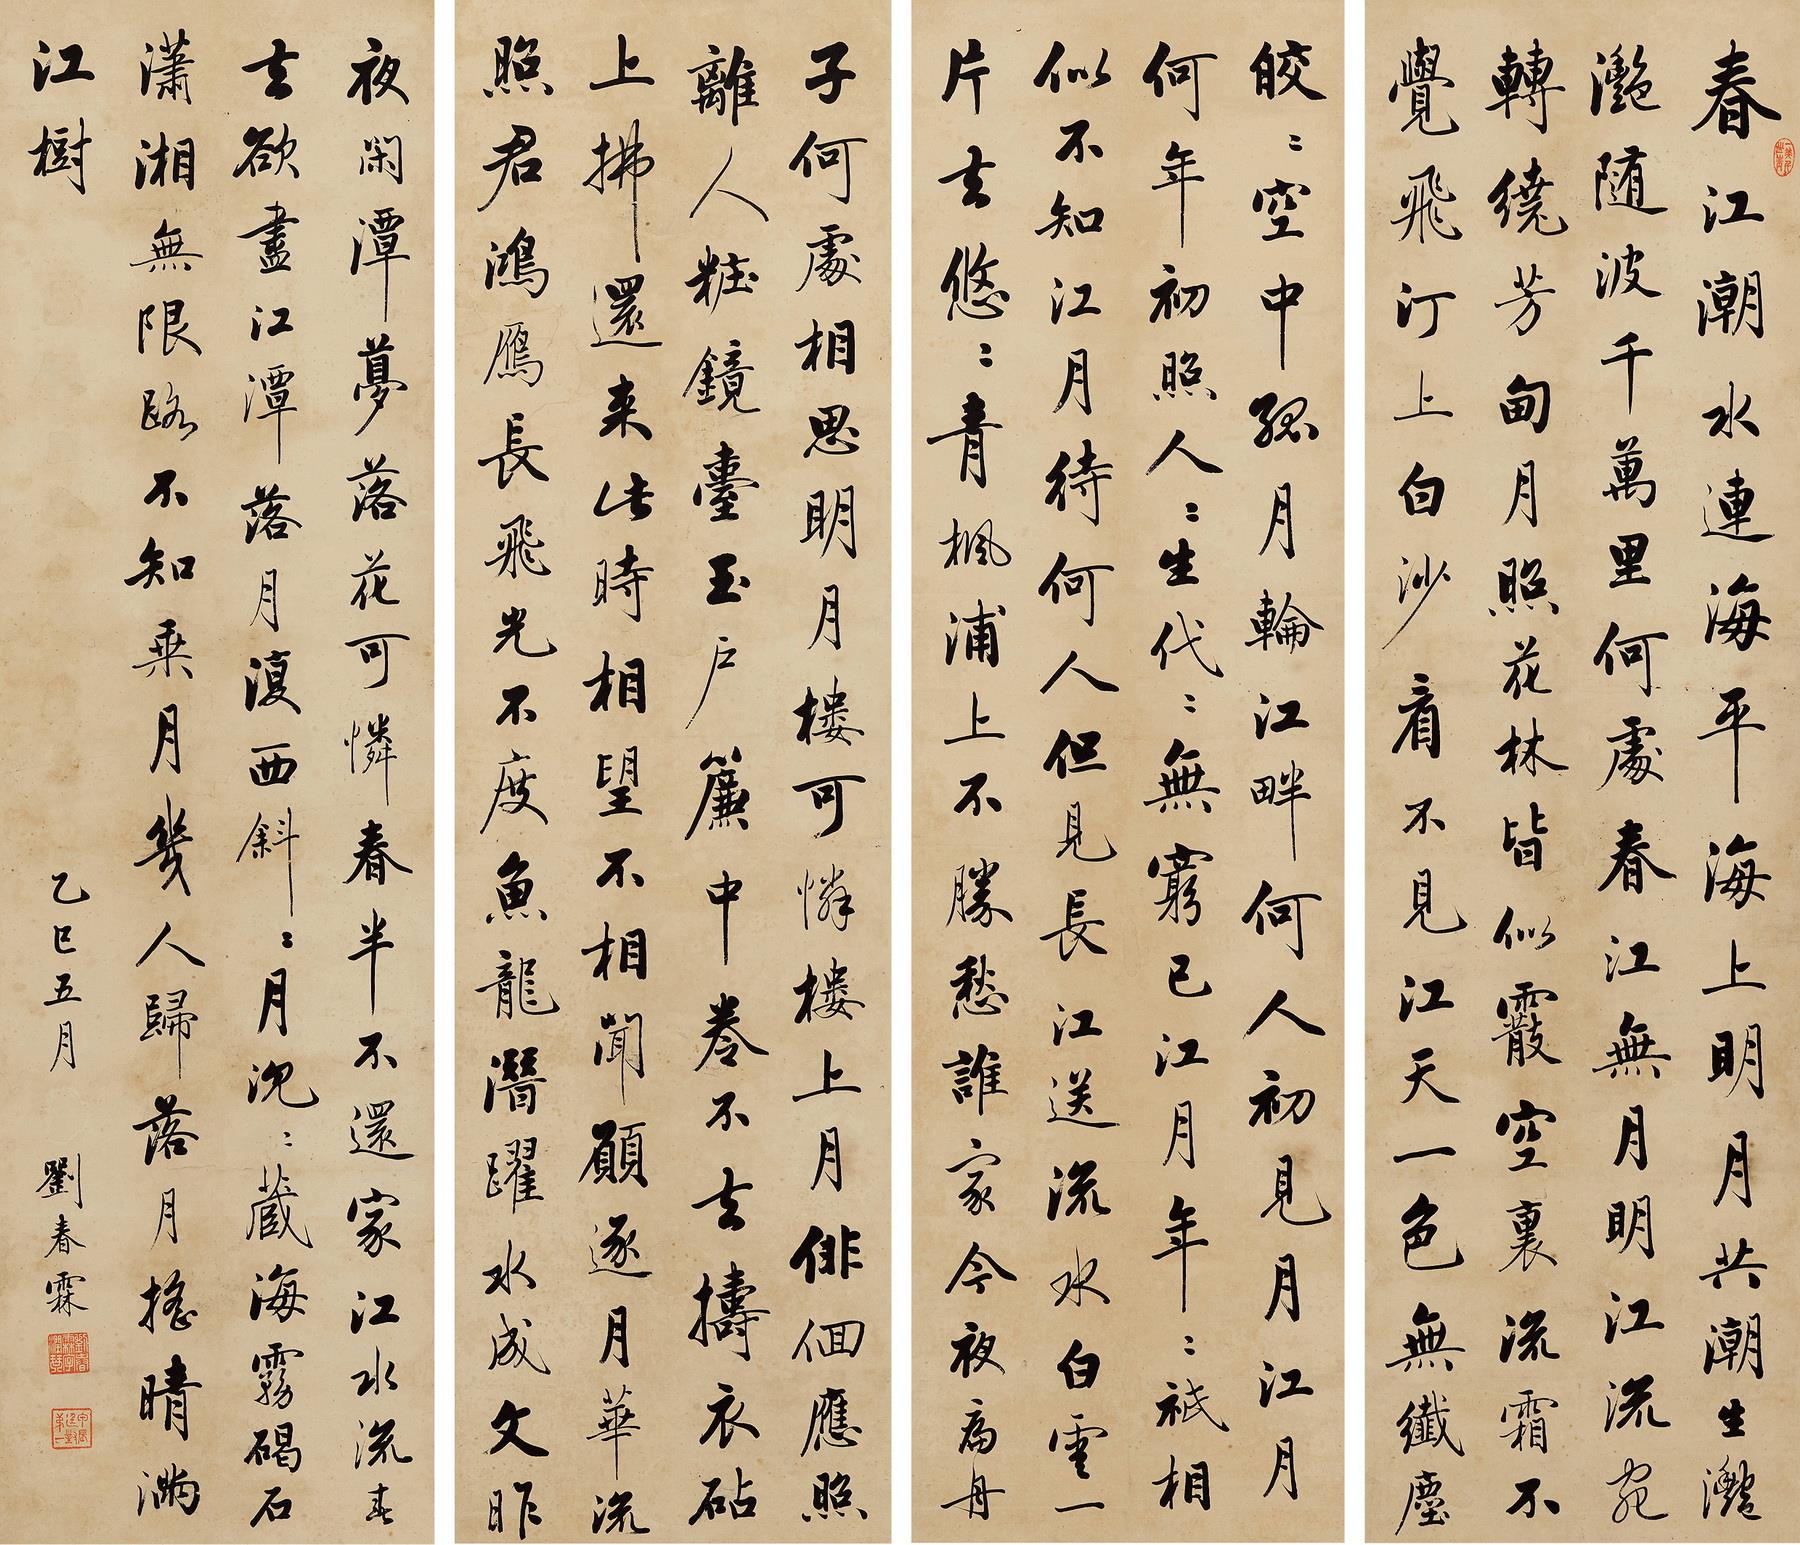 春江潮水連海平海上明月共潮生灧
灧隨波千萬里何處春江無月明江流宛
轉繞芳甸月照花林皆似霰空裏流霜不
覺飛汀上白沙看不見江天一色無纖塵
皎〻空中孤月輪江畔何人初見月江月
何年初照人〻生代〻無窮已江月年〻祇相
似不知江月待何人但見長江送流水白雲一
片去悠〻青楓浦上不勝愁誰家今夜扁舟
子何處相思明月樓可憐樓上月俳佪應照
離人粧鏡臺玉戶簾中卷不去擣衣砧
上拂還来此時相望不相聞願逐月華流
照君鴻鴈長飛光不度魚龍潛躍水成文昨
夜閑潭夢落花可憐春半不還家江水流春
去欲盡江潭落月復西斜〻月沈〻藏海霧碣石
瀟湘無限路不知乘月幾人歸落月搖晴滿
江樹
乙巳五月 劉春霖
劉春霖字潤琴
甲辰廷對第一